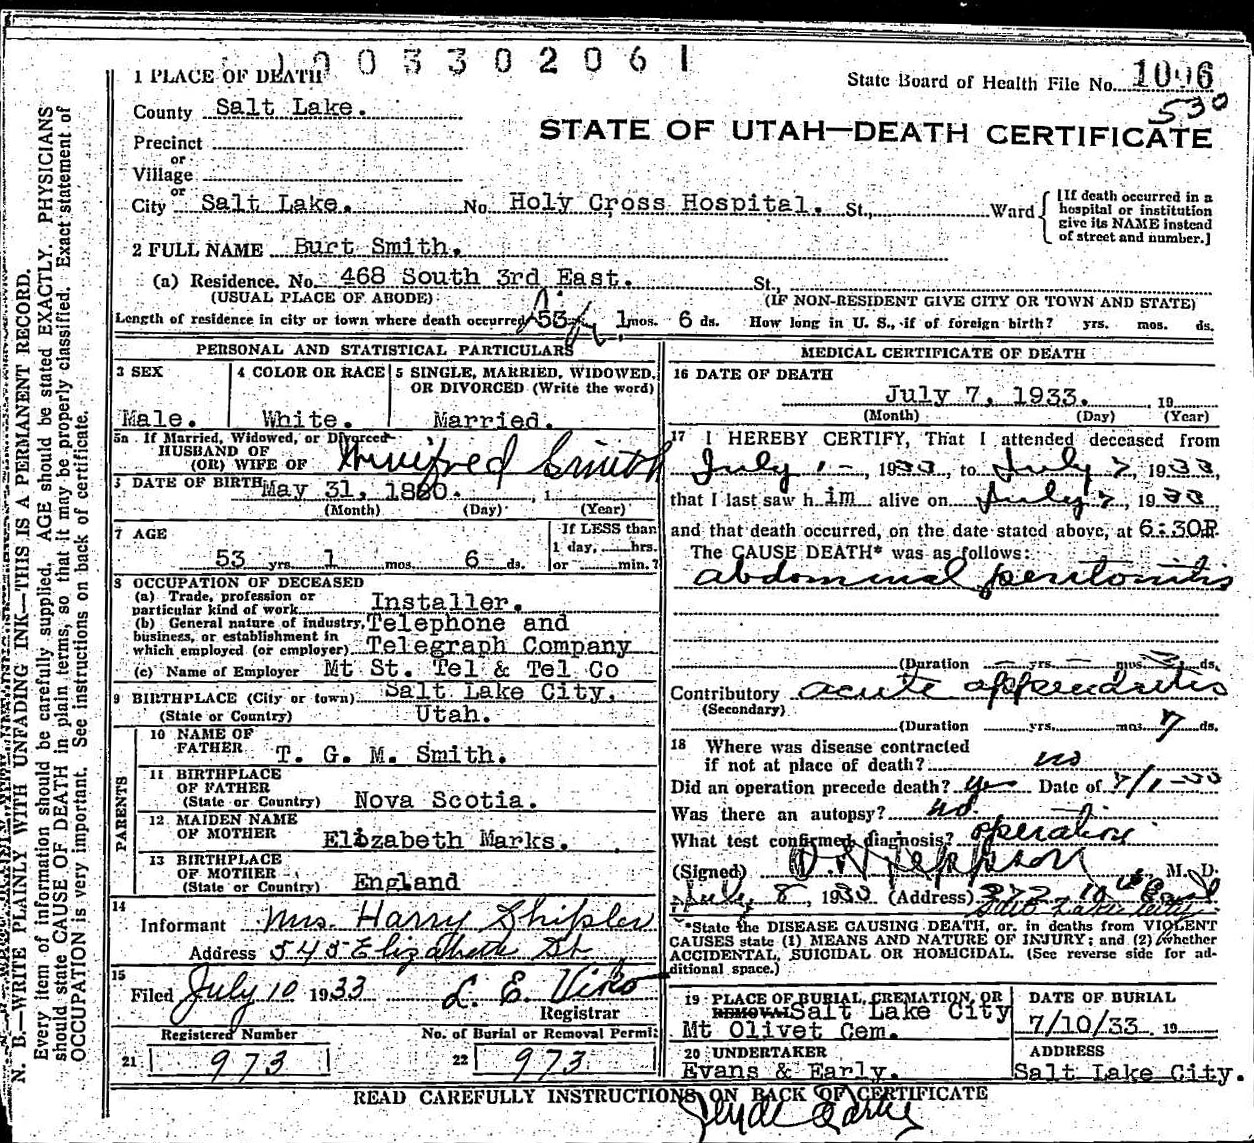 1003302061
1 PLACE OF DEATH
State Board of Health File No. 1006
530
County Salt Lake.
STATE OF UTAH—DEATH CERTIFICATE
Precinct
or
Village
or
City Salt Lake. No. Holy Cross Hospital. St., Ward
[If death occurred in a hospital or institution give its NAME instead of street and number.]
2 FULL NAME Burt Smith.
(a) Residence. No. 468 South 3rd East. St.,
(USUAL PLACE OF ABODE) (IF NON-RESIDENT GIVE CITY OR TOWN AND STATE)
Length of residence in city or town where death occurred 53 1 mos. 6 ds. How long in U. S., if of foreign birth? yrs. mos. ds.
PERSONAL AND STATISTICAL PARTICULARS
3 SEX
Male.
4 COLOR OR RACE
White.
5 SINGLE, MARRIED, WIDOWED, OR DIVORCED (Write the word)
Married.
5a If Married, Widowed, or Divorced
HUSBAND OF
(OR) WIFE OF Winifred Smith
DATE OF BIRTH May 31, 1880. , 1
(Month) (Day) (Year)
7 AGE
53 yrs. 1 mos. 6 ds.
If LESS than
1 day, hrs.
or min.?
8 OCCUPATION OF DECEASED
(a) Trade, profession or
particular kind of work Installer.
(b) General nature of industry, Telephone and
business, or establishment in
which employed (or employer) Telegraph Company
(c) Name of Employer Mt St. Tel & Tel Co
9 BIRTHPLACE (City or town) Salt Lake City,
(State or Country) Utah.
PARENTS
10 NAME OF
FATHER T. G. M. Smith.
11 BIRTHPLACE
OF FATHER
(State or Country) Nova Scotia.
12 MAIDEN NAME
OF MOTHER Elizabeth Marks.
13 BIRTHPLACE
OF MOTHER
(State or Country) England
14
Informant Mrs. Harry Shipler
Address 545 Elizabeth St
15
Filed July 10 1933 L. E. Viko
Registrar
Registered Number No. of Burial or Removal Permit
21 973 22 973
MEDICAL CERTIFICATE OF DEATH
16 DATE OF DEATH
July 7, 1933. , 19
(Month) (Day) (Year)
17 I HEREBY CERTIFY, That I attended deceased from
July 1 - , 1933, to July 7, 1933,
that I last saw h im alive on July 7, 1933
and that death occurred, on the date stated above, at 6:30P.
The CAUSE DEATH* was as follows:
abdominal peritonitis
(Duration — yrs. — mos. 3 ds.
Contributory acute appendicitis
(Secondary)
(Duration yrs. mos. 7 ds.
18 Where was disease contracted
if not at place of death? no
Did an operation precede death? yes Date of 7/1-33
Was there an autopsy? no.
What test confirmed diagnosis? operation
(Signed) Jeppson M. D.
July 8, 1933 (Address)
Salt Lake City
*State the DISEASE CAUSING DEATH, or, in deaths from VIOLENT
CAUSES state (1) MEANS AND NATURE OF INJURY; and (2) whether
ACCIDENTAL, SUICIDAL OR HOMICIDAL. (See reverse side for ad-
ditional space.)
19 PLACE OF BURIAL, CREMATION, OR
REMOVAL Salt Lake City
Mt Olivet Cem.
DATE OF BURIAL
7/10/33. 19
20 UNDERTAKER
Evans & Early.
ADDRESS
Salt Lake City.
READ CAREFULLY INSTRUCTIONS ON BACK OF CERTIFICATE
N. B.—WRITE PLAINLY WITH UNFADING INK—THIS IS A PERMANENT RECORD.
Every item of information should be carefully supplied. AGE should be stated EXACTLY. PHYSICIANS
should state CAUSE OF DEATH in plain terms, so that it may be properly classified. Exact statement of
OCCUPATION is very important. See instructions on back of certificate.